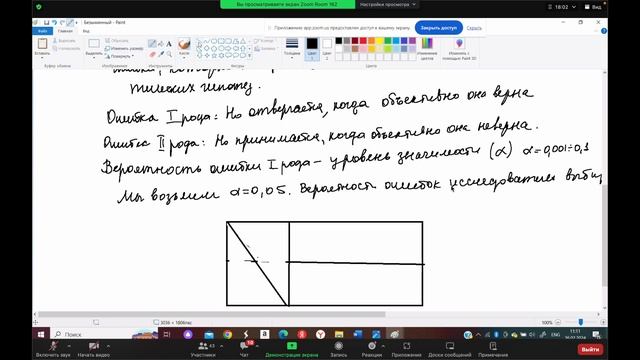 Вы просматриваете экран Zoom Room 162
Настройки просмотра
18:02
Вид
Безымянный - Paint
Приложению app.zoom.us предоставлен доступ к вашему экрану.
Закрыть доступ
Вставить
Выделить
Изменить размер
Повернуть
Кисти
Фигуры
Контур
Заливка
Толщина
Цвет 1
Цвет 2
Изменение цветов
Изменить с помощью Paint 3D
Буфер обмена
Изображение
Инструменты
Фигуры
Цвета
тических гипотез.
Ошибка I рода: Н₀ отвергается, когда объективно она верна
Ошибка II рода: Н₀ принимается, когда объективно она неверна.
Вероятность ошибки I рода – уровень значимости (α) α=0,001÷0,1
Мы возьмем α=0,05. Вероятности ошибок исследователь
100%
Поиск
ENG
11:11
Включить звук
Начать видео
Участники
43
Чат
Демонстрация экрана
Запись
Реакции
Приложения
Доски сообщений
Примечания
Выйти